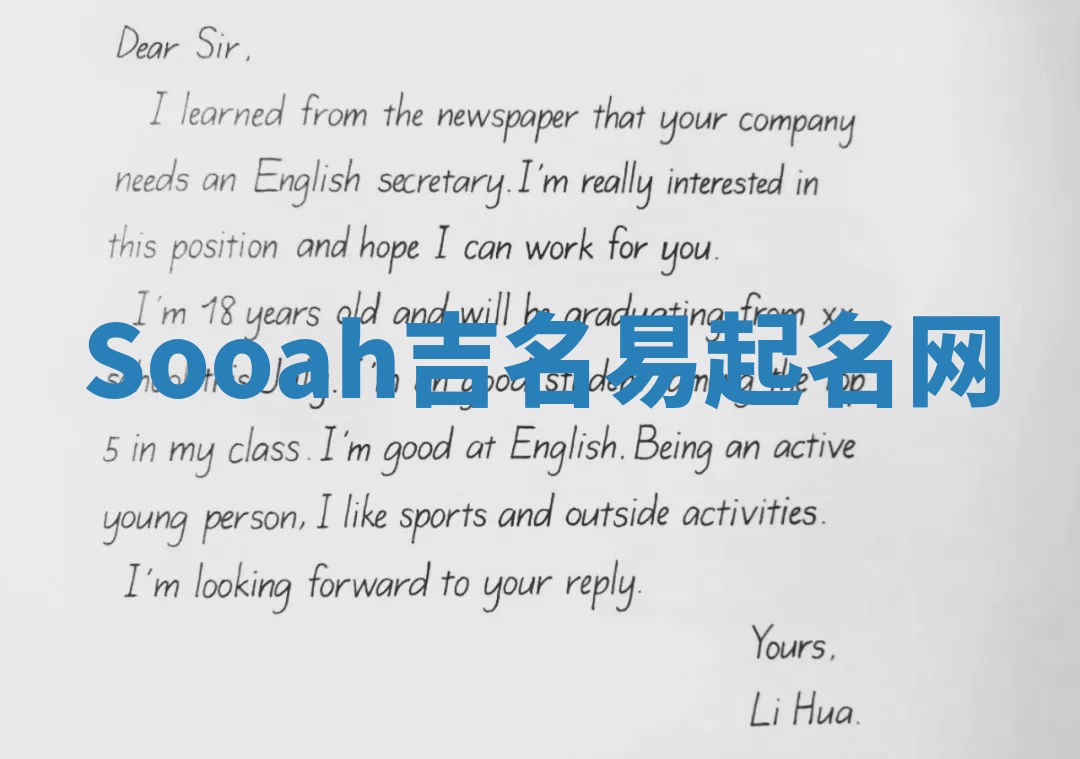 Dear Sir,
I learned from the newspaper that your company
needs an English secretary. I'm really interested in
this position and hope I can work for you.
I'm 18 years old and will be graduating from xx
Sooah吉名易起名网
school this July. I'm an good student among the top
5 in my class. I'm good at English. Being an active
young person, I like sports and outside activities.
I'm looking forward to your reply.
Yours,
Li Hua.